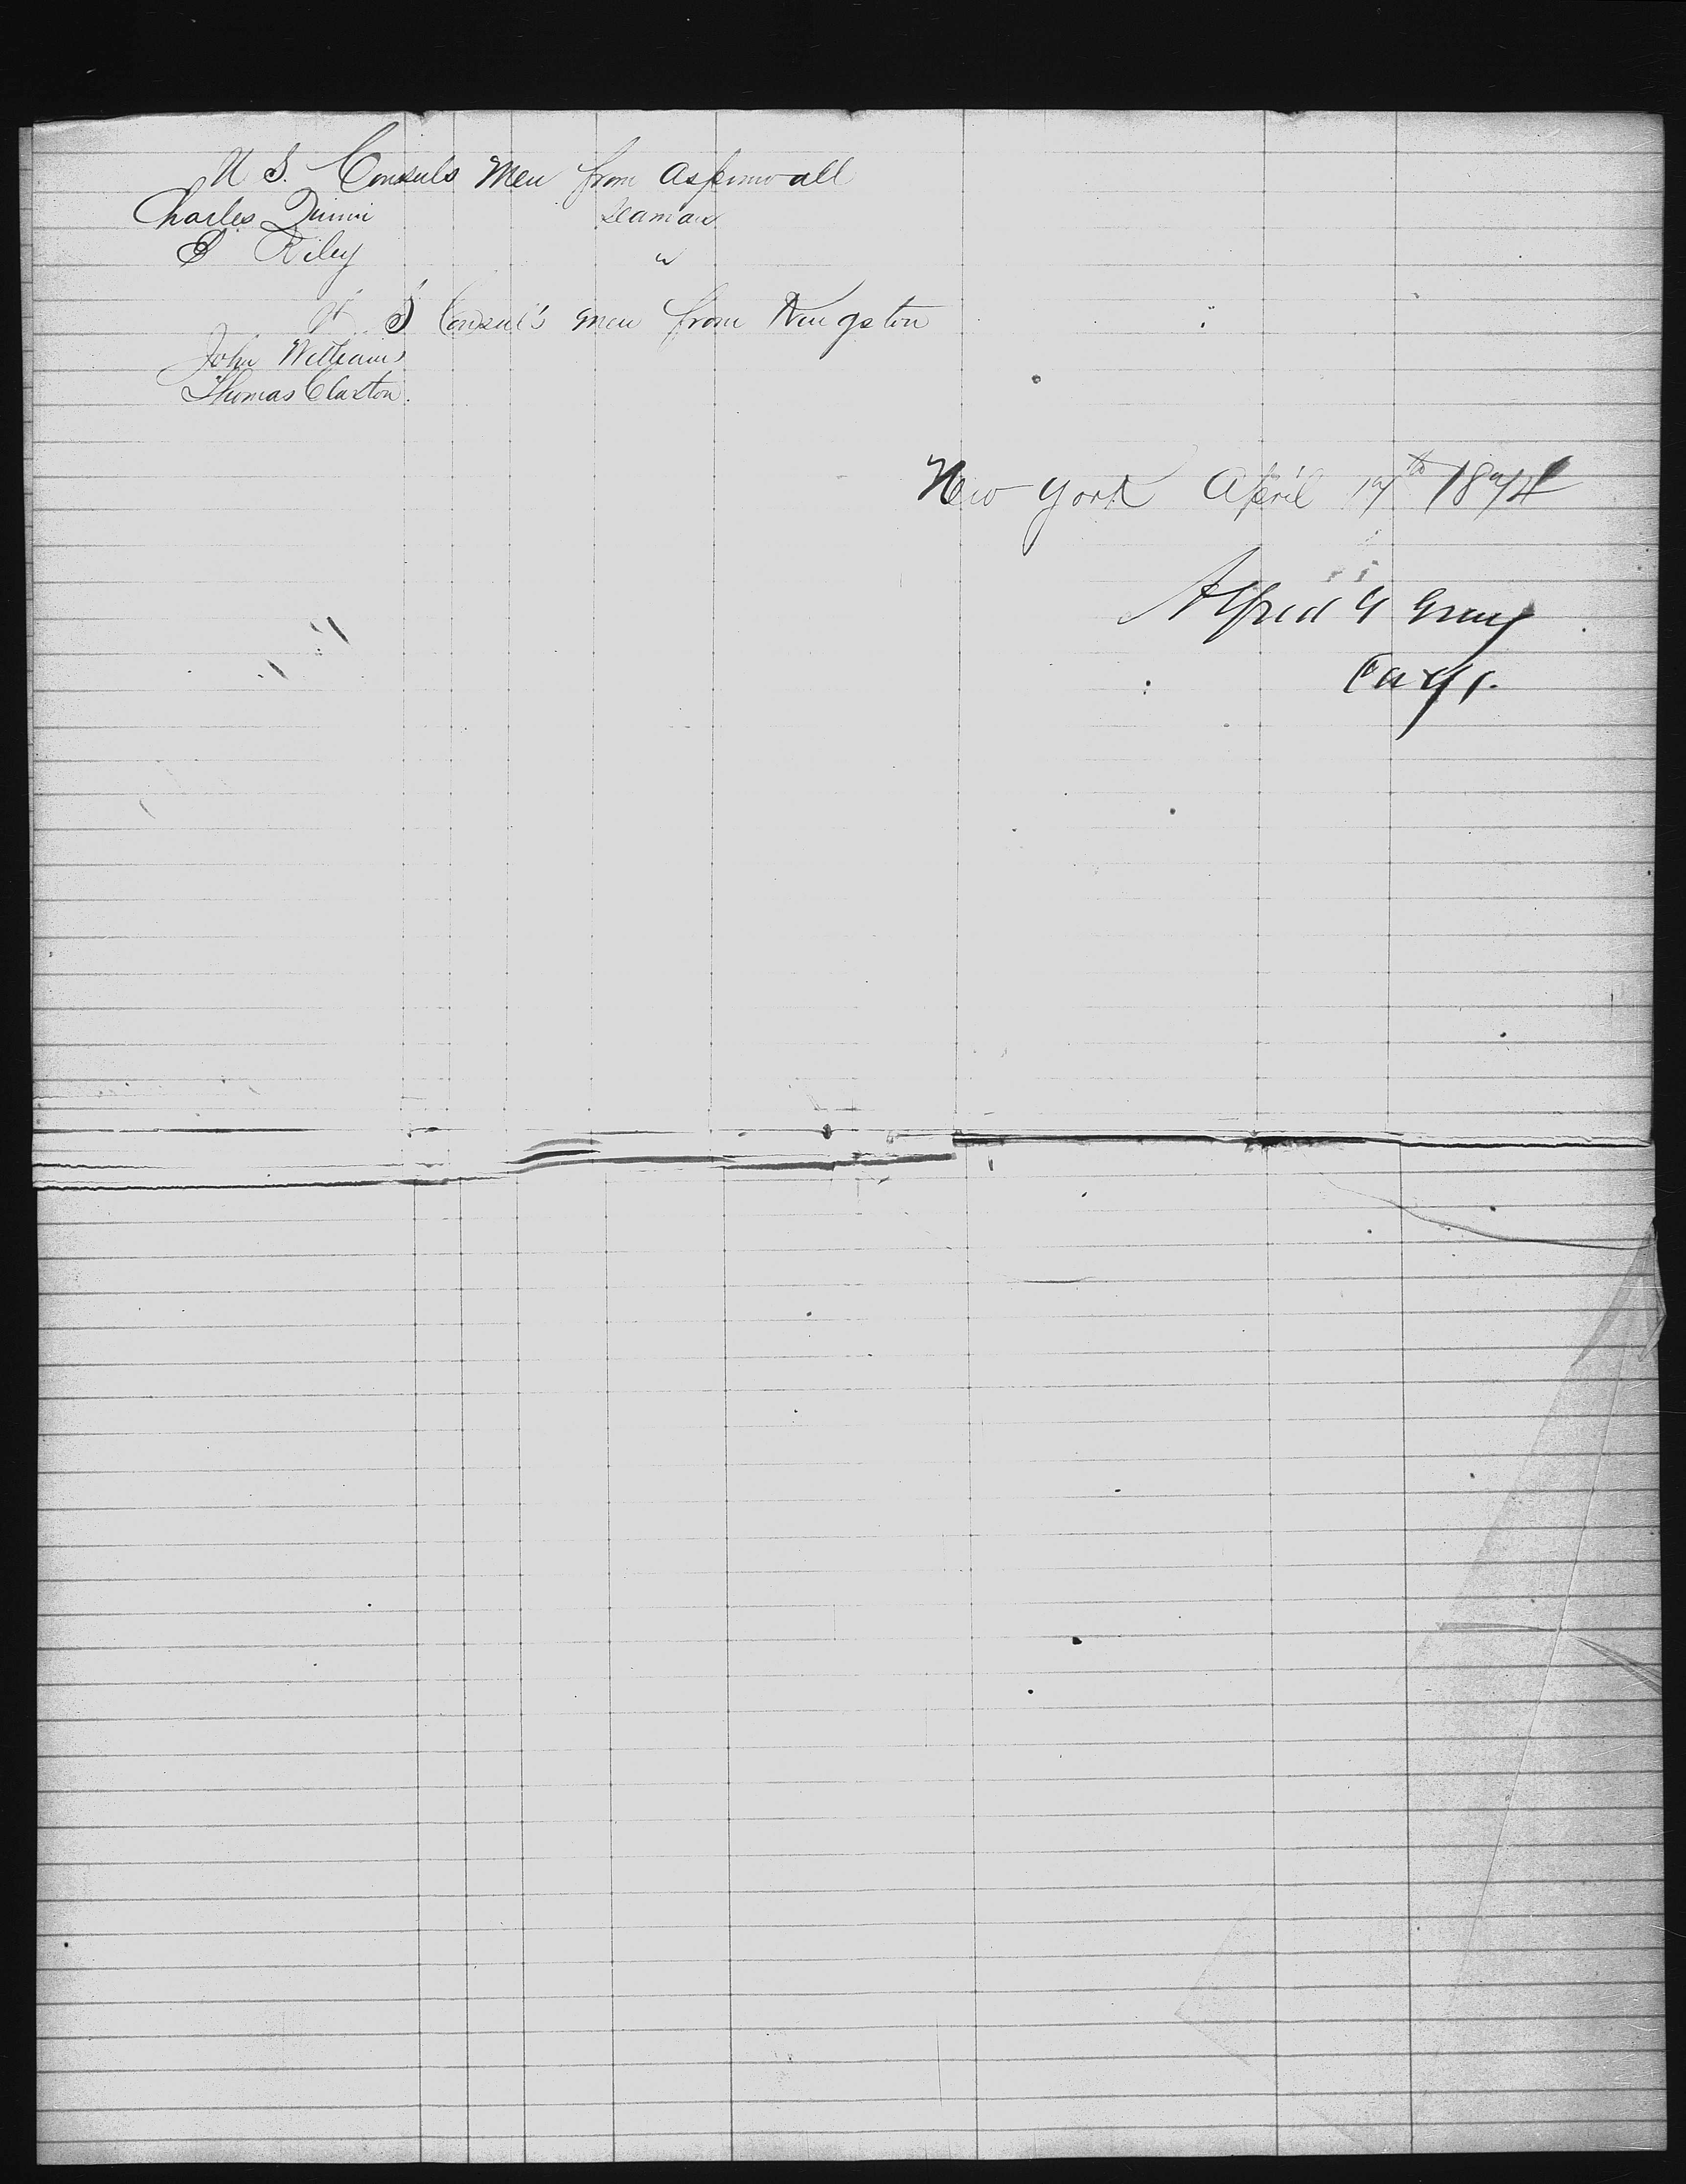 U S. Consuls Men from Aspinwall
Charles Quinn Seaman
P Riley "
U. S Consul's men from Kingston
John Williams
Thomas Claxton.
New York April 17th 1874
Alfred G Gray
Capt.